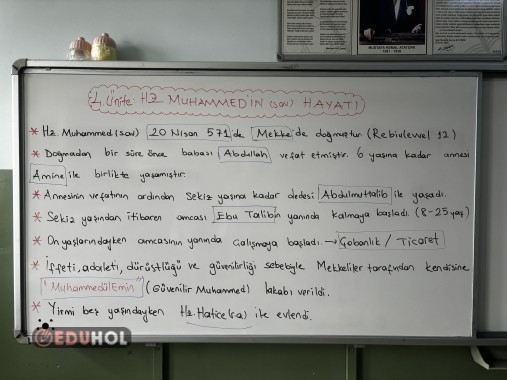 MUSTAFA KEMAL ATATÜRK
1881 - 1938
4. Ünite: HZ. MUHAMMED'İN (SAV) HAYATI
* Hz. Muhammed (sav) 20 Nisan 571'de Mekke'de doğmuştur (Rebiulevvel 12)
* Doğmadan bir süre önce babası Abdullah vefat etmiştir. 6 yaşına kadar annesi
Amine ile birlikte yaşamıştır.
* Annesinin vefatının ardından sekiz yaşına kadar dedesi Abdulmuttalib ile yaşadı.
* Sekiz yaşından itibaren amcası Ebu Talib'in yanında kalmaya başladı. (8-25 yaş)
* On yaşlarındayken amcasının yanında çalışmaya başladı. → Çobanlık / Ticaret
* İffeti, adaleti, dürüstlüğü ve güvenilirliği sebebiyle Mekkeliler tarafından kendisine
"Muhammedül Emin" (Güvenilir Muhammed) lakabı verildi.
* Yirmi beş yaşındayken Hz. Hatice (r.a) ile evlendi.
EDUHOL